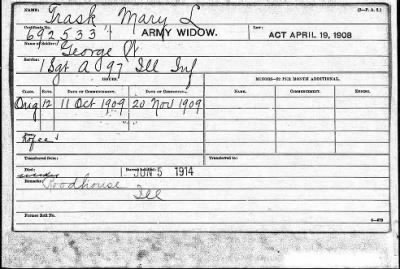 NAME: Trask Mary L (3-P. A. 2.)
Certificate No. 692533 ARMY WIDOW. Law: ACT APRIL 19, 1908
Name of Soldier: George W
Service: 1 Sgt A 97 Ill Inf
ISSUES. MINORS—$2 PER MONTH ADDITIONAL.
CLASS. RATE. DATE OF COMMENCEMENT. DATE OF CERTIFICATE. NAME. COMMENCEMENT. ENDING.
Orig 12 11 Oct 1909 20 Nov 1909
Transferred from: Transferred to:
Died: JUN 5 1914
Remarks: Roodhouse
Ill
Former Roll No.